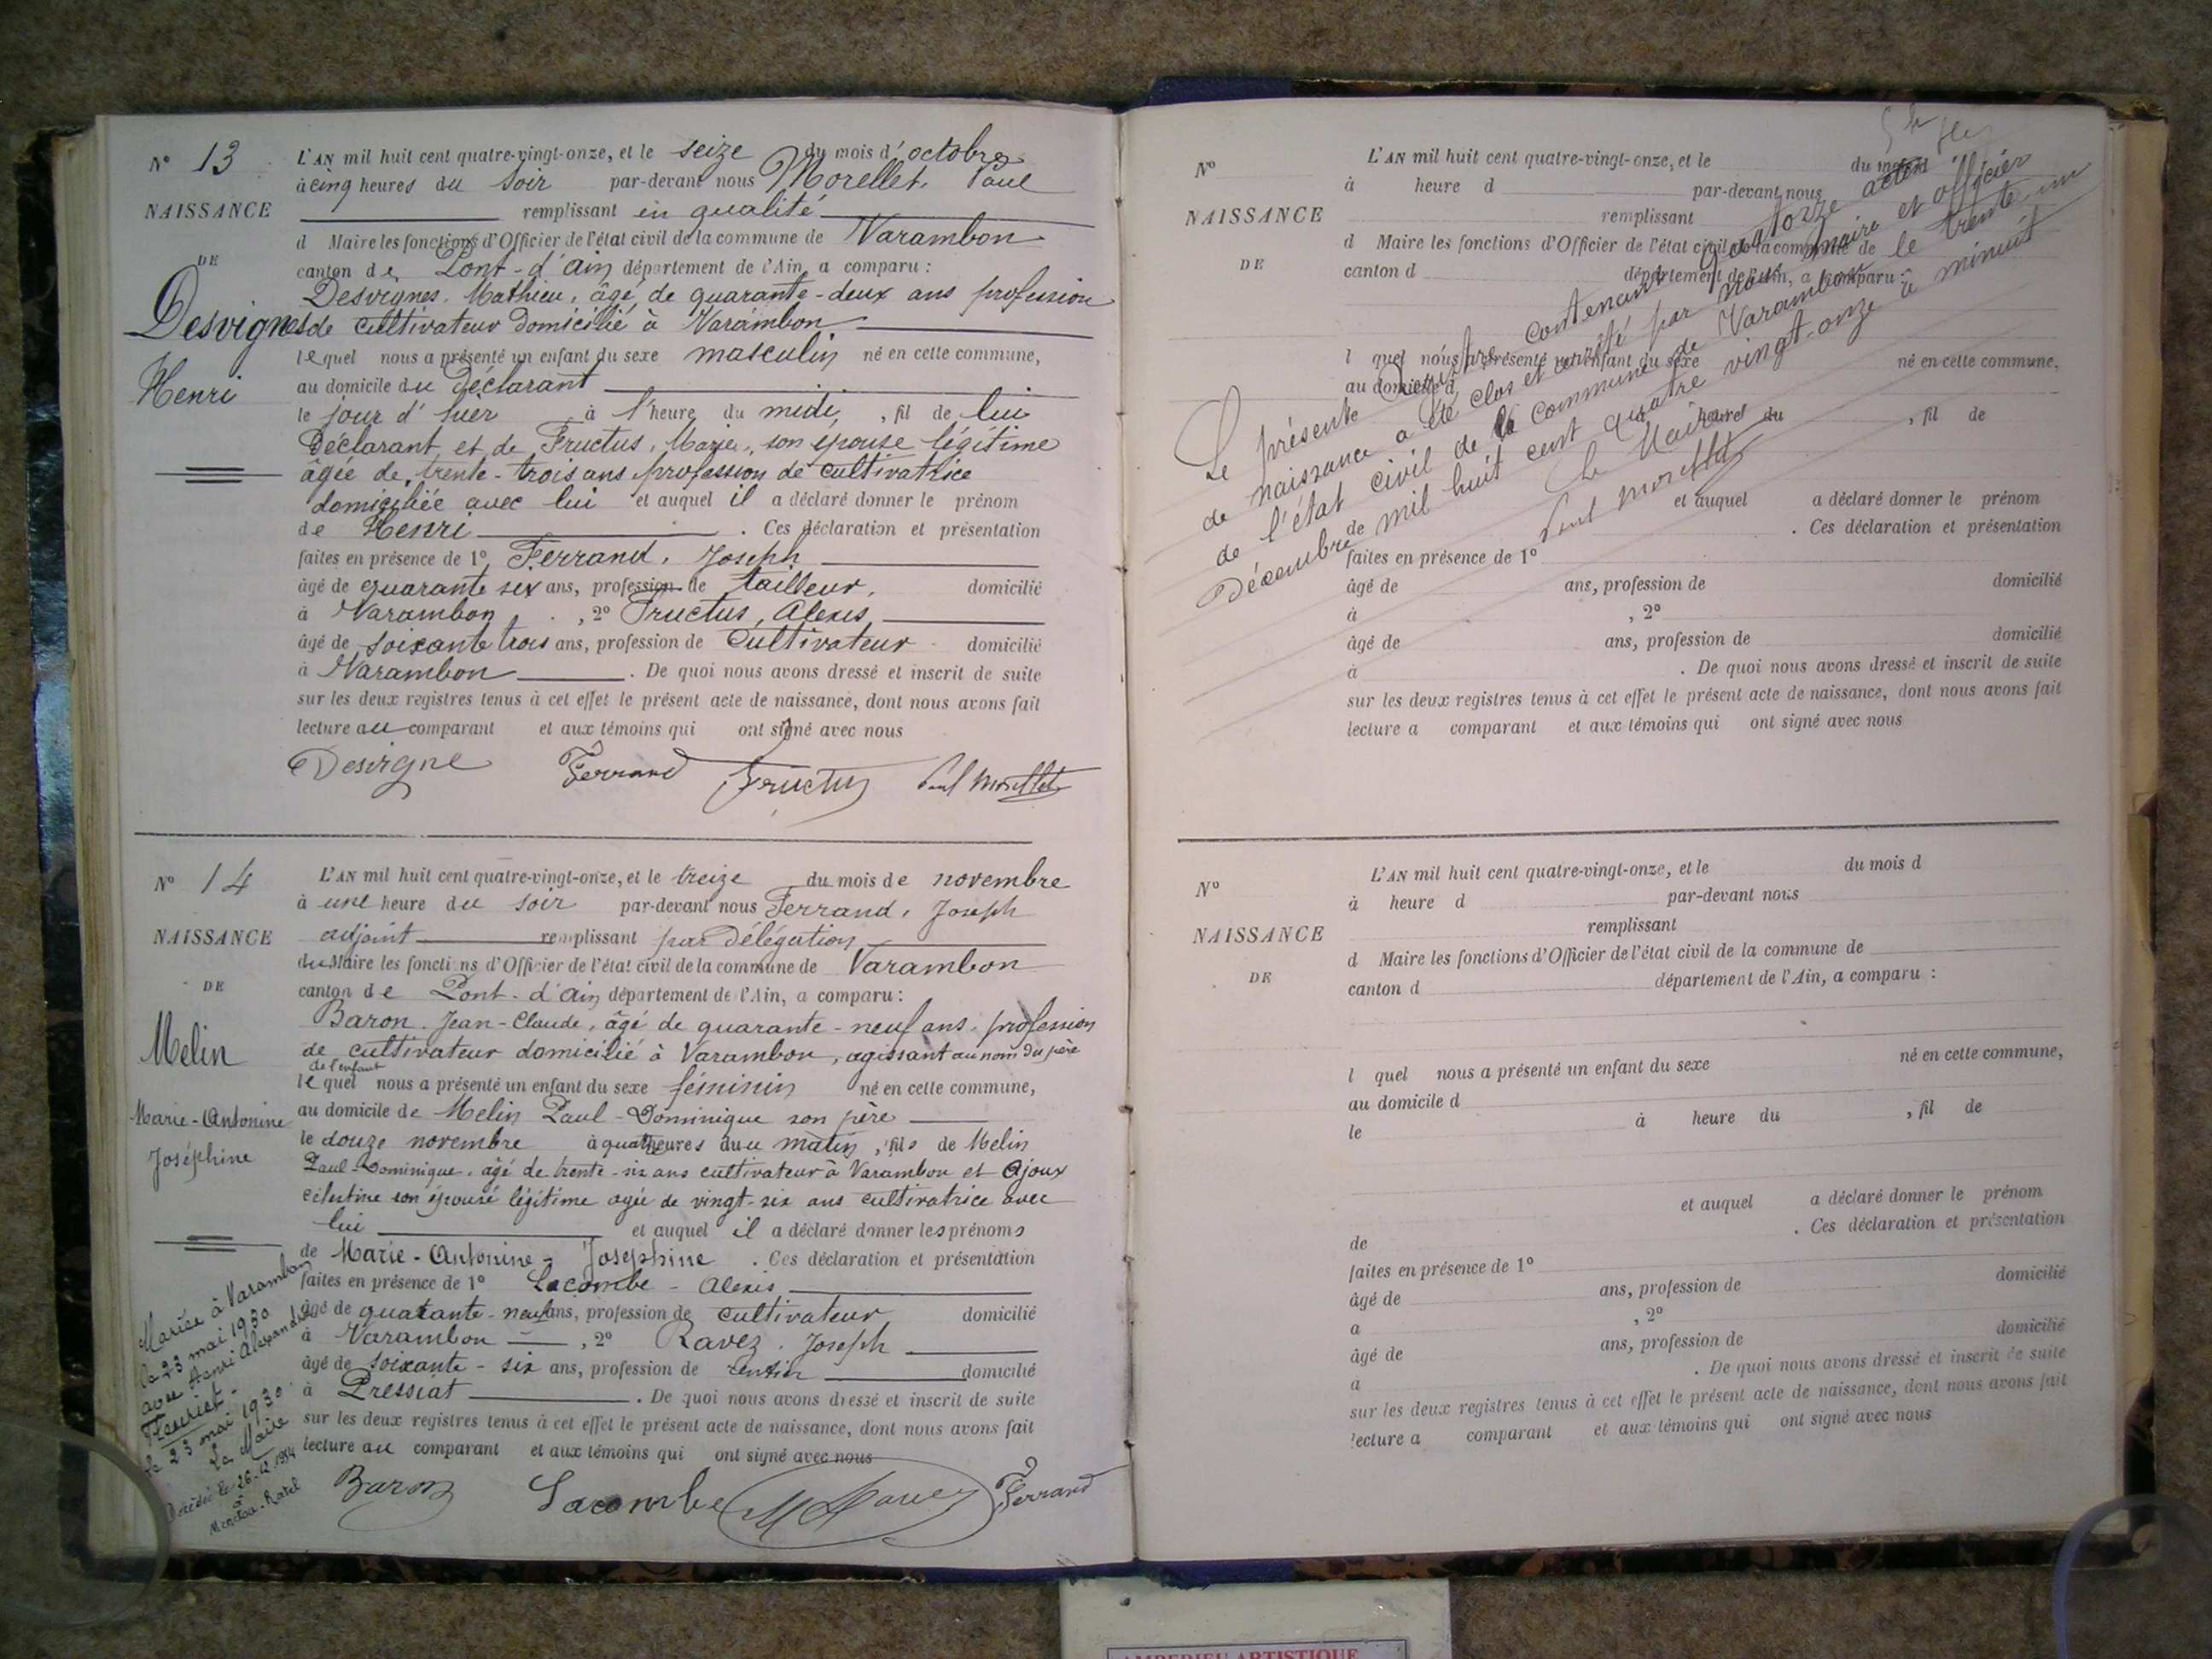 N° 13
NAISSANCE
DE
Desvignes
Henri
L'AN mil huit cent quatre-vingt-onze, et le seize du mois d'octobre
à cinq heures du soir par-devant nous Morellet, Paul
remplissant en qualité
d Maire les fonctions d'Officier de l'état civil de la commune de Varambon
canton de Pont-d'Ain département de l'Ain, a comparu :
Desvignes, Mathieu, âgé de quarante-deux ans profession
de cultivateur domicilié à Varambon
lequel nous a présenté un enfant du sexe masculin né en cette commune,
au domicile du Déclarant
le jour d'hier à l'heure du midi, fil de lui
Déclarant et de Fructus, Marie, son épouse légitime
âgée de trente-trois ans profession de cultivatrice
domiciliée avec lui et auquel il a déclaré donner le prénom
de Henri . Ces déclaration et présentation
faites en présence de 1° Ferrand, Joseph
âgé de quarante six ans, profession de tailleur, domicilié
à Varambon , 2° Fructus, Alexis
âgé de soixante trois ans, profession de Cultivateur domicilié
à Varambon . De quoi nous avons dressé et inscrit de suite
sur les deux registres tenus à cet effet le présent acte de naissance, dont nous avons fait
lecture au comparant et aux témoins qui ont signé avec nous
Desvigne Ferrand Fructus Paul Morellet
N° 14
NAISSANCE
DE
Melin
Marie-Antonine
Joséphine
L'AN mil huit cent quatre-vingt-onze, et le treize du mois de novembre
à une heure du soir par-devant nous Ferrand, Joseph
adjoint remplissant par délégation
du Maire les fonctions d'Officier de l'état civil de la commune de Varambon
canton de Pont-d'Ain département de l'Ain, a comparu :
Baron, Jean-Claude, âgé de quarante-neuf ans, profession
de cultivateur domicilié à Varambon, agissant au nom du père
de l'enfant
lequel nous a présenté un enfant du sexe féminin né en cette commune,
au domicile de Melin Paul-Dominique son père
le douze novembre à quatre heures du matin, fils de Melin
Paul-Dominique, âgé de trente-six ans cultivateur à Varambon et Ajoux
Célestine son épouse légitime agée de vingt-six ans cultivatrice avec
lui et auquel il a déclaré donner les prénoms
de Marie-Antonine-Josephine . Ces déclaration et présentation
faites en présence de 1° Lacombe-Alexis
âgé de quarante-neuf ans, profession de cultivateur domicilié
à Varambon , 2° Ravez, Joseph
âgé de soixante-six ans, profession de rentier domicilié
à Pressiat . De quoi nous avons dressé et inscrit de suite
sur les deux registres tenus à cet effet le présent acte de naissance, dont nous avons fait
lecture au comparant et aux témoins qui ont signé avec nous
Baron Lacombe Ferrand
Mariée à Varambon
le 23 mai 1930
avec Henri Alexandre
Fleuriet.
le 23 mai 1930
Le Maire
Décédée le 26-12 1984
à
N°
NAISSANCE
DE
L'AN mil huit cent quatre-vingt-onze, et le du mois d
à heure d par-devant nous
remplissant
d Maire les fonctions d'Officier de l'état civil de la commune de
canton d département de l'Ain, a comparu :
l quel nous a présenté un enfant du sexe né en cette commune,
au domicile d
à heures du , fil de
et auquel a déclaré donner le prénom
de . Ces déclaration et présentation
faites en présence de 1°
âgé de ans, profession de domicilié
à , 2°
âgé de ans, profession de domicilié
à . De quoi nous avons dressé et inscrit de suite
sur les deux registres tenus à cet effet le présent acte de naissance, dont nous avons fait
lecture a comparant et aux témoins qui ont signé avec nous
Le présente registre contenant quatorze actes
de naissance a été clos et arrêté par nous maire et officier
de l'état civil de la commune de Varambon le trente-un
Décembre mil huit cent quatre vingt-onze à minuit
Le Maire
Paul Morellet
N°
NAISSANCE
DE
L'AN mil huit cent quatre-vingt-onze, et le du mois d
à heure d par-devant nous
remplissant
d Maire les fonctions d'Officier de l'état civil de la commune de
canton d département de l'Ain, a comparu :
l quel nous a présenté un enfant du sexe né en cette commune,
au domicile d
le à heure du , fil de
et auquel a déclaré donner le prénom
de . Ces déclaration et présentation
faites en présence de 1°
âgé de ans, profession de domicilié
a , 2°
âgé de ans, profession de domicilié
a . De quoi nous avons dressé et inscrit de suite
sur les deux registres tenus à cet effet le présent acte de naissance, dont nous avons fait
lecture a comparant et aux témoins qui ont signé avec nous
AMBERIEU ARTISTIQUE